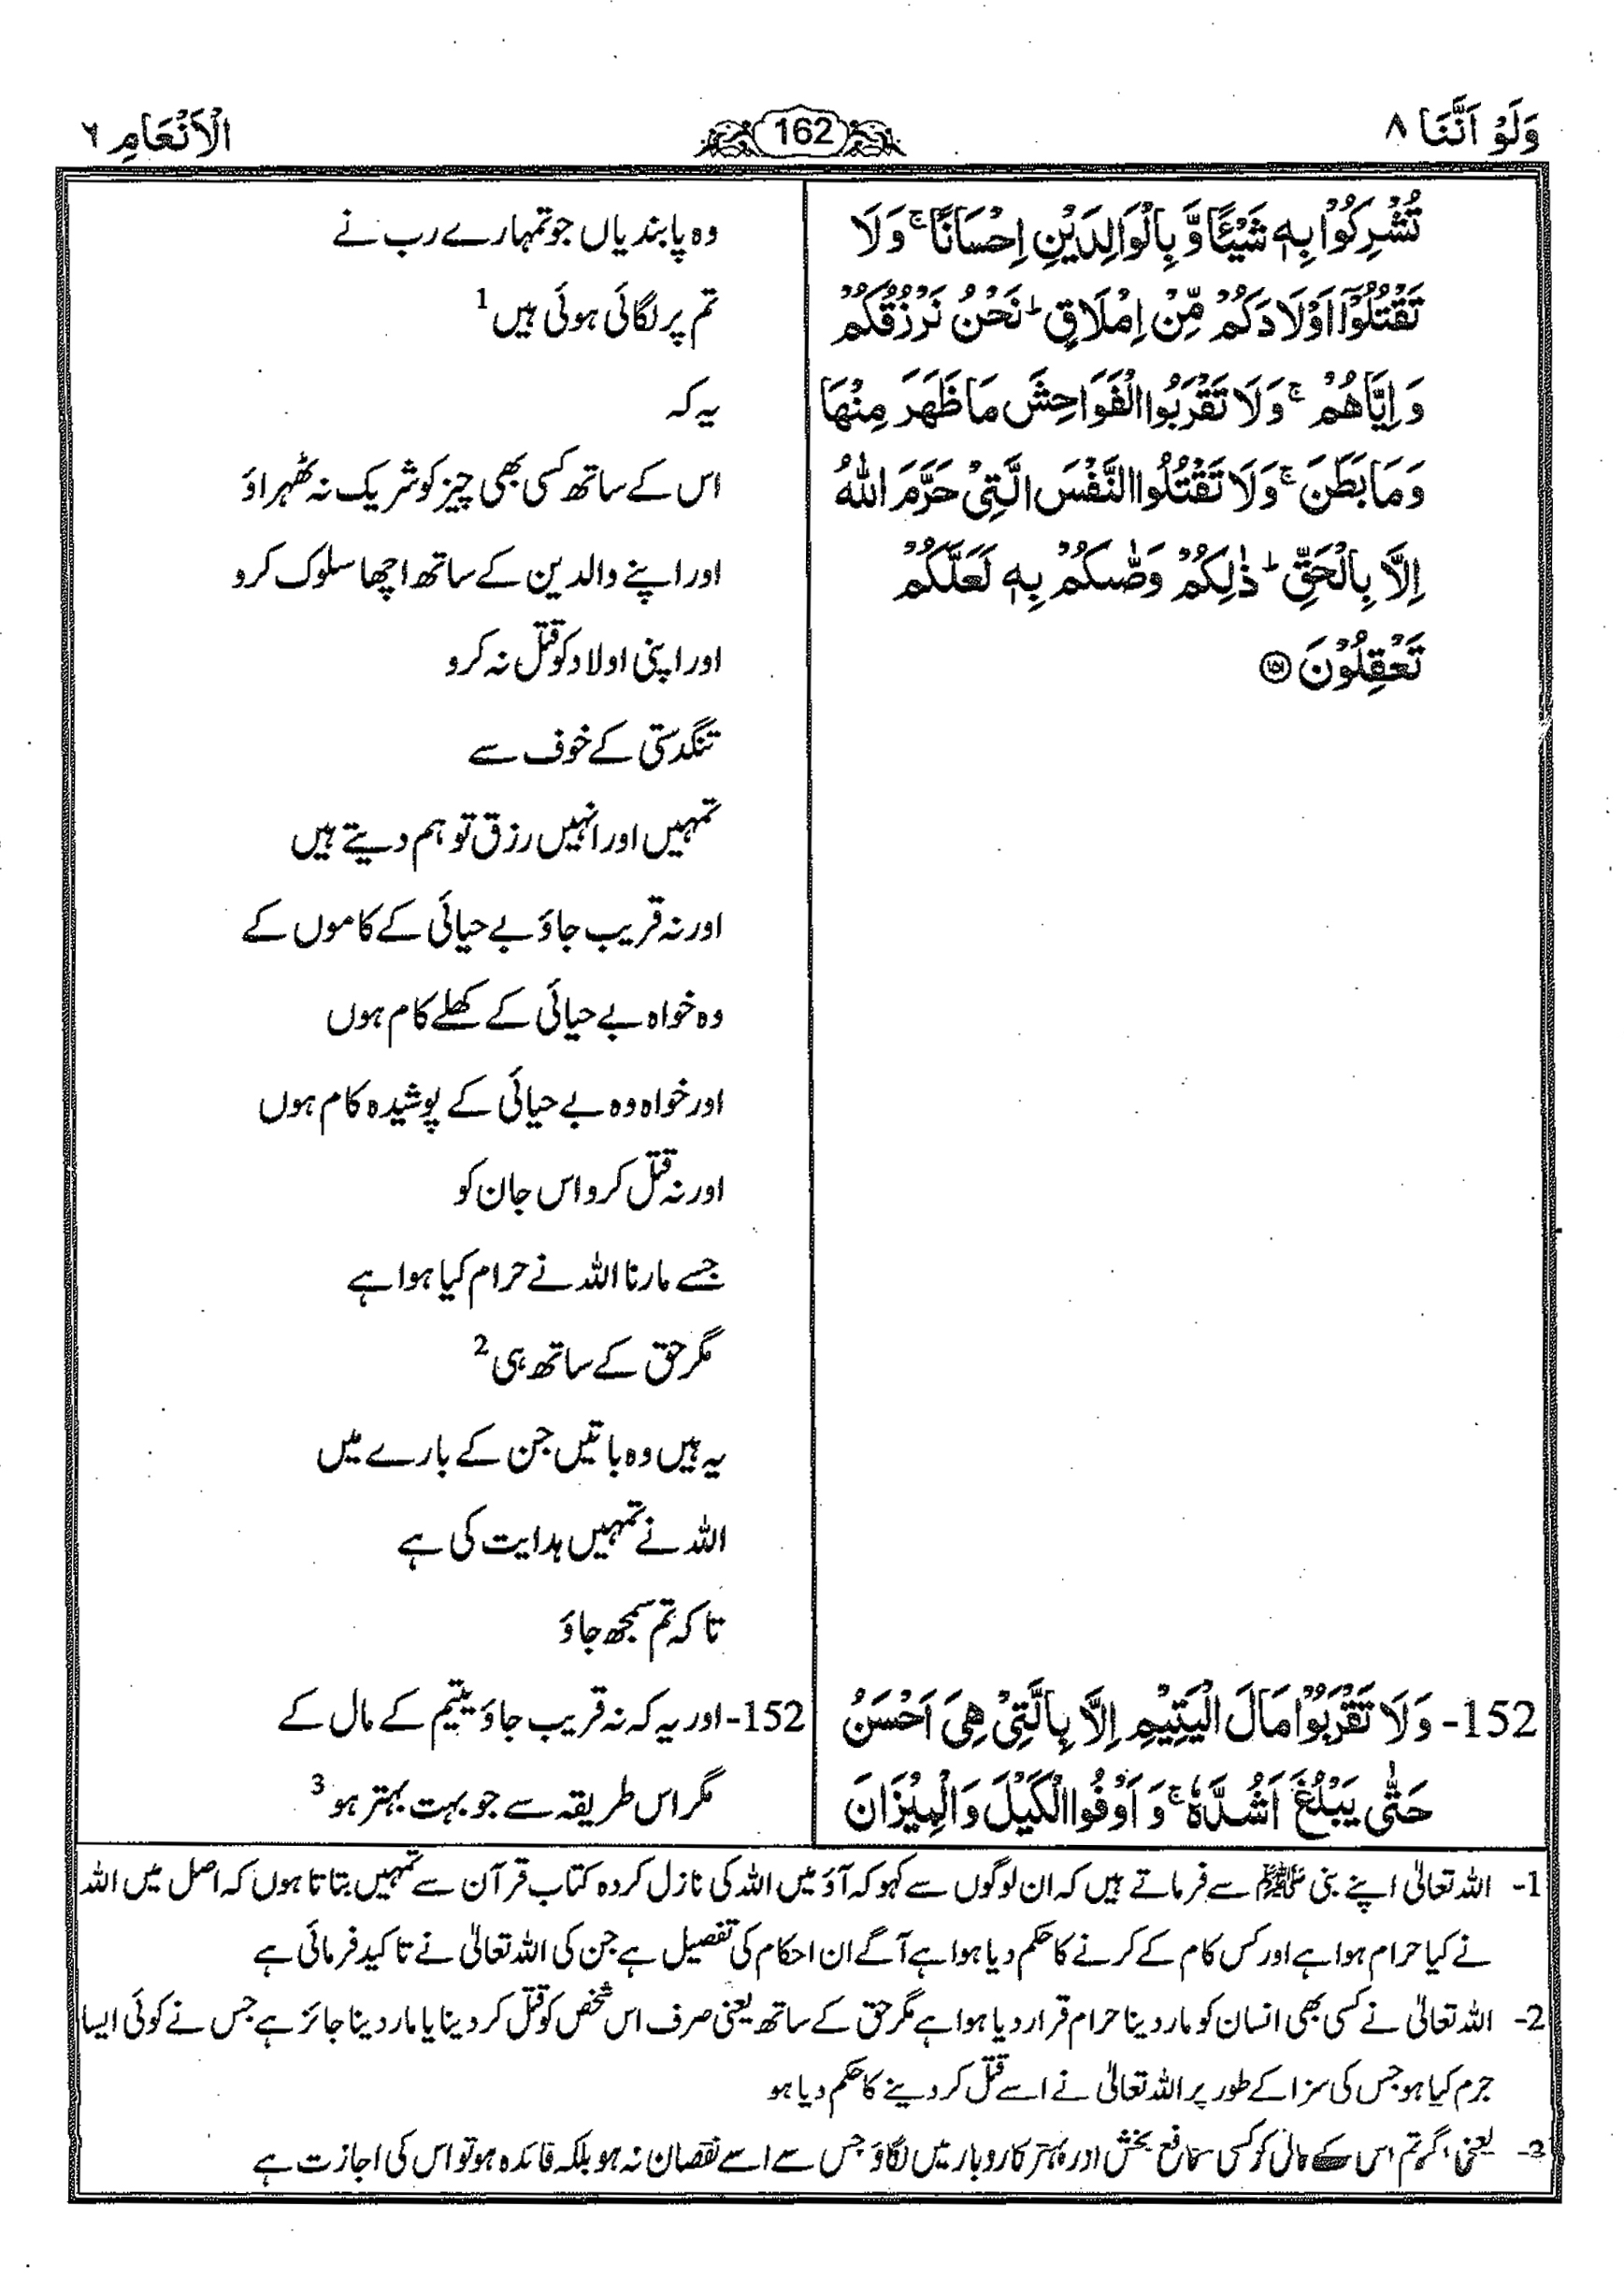 وَلَوْ اَنَّنَا ۸
162
الْاَنْعَامِ ٦
تُشْرِكُوْا بِهٖ شَيْـًٔا وَّ بِالْوَالِدَيْنِ اِحْسَانًا ۚ وَلَا
تَقْتُلُوْۤا اَوْلَادَكُمْ مِّنْ اِمْلَاقٍ ؕ نَحْنُ نَرْزُقُكُمْ
وَ اِيَّاهُمْ ۚ وَلَا تَقْرَبُوا الْفَوَاحِشَ مَا ظَهَرَ مِنْهَا
وَمَا بَطَنَ ۚ وَلَا تَقْتُلُوا النَّفْسَ الَّتِيْ حَرَّمَ اللّٰهُ
اِلَّا بِالْحَقِّ ؕ ذٰلِكُمْ وَصّٰىكُمْ بِهٖ لَعَلَّكُمْ
تَعْقِلُوْنَ ۝۱۵۱
152- وَلَا تَقْرَبُوْا مَالَ الْيَتِيْمِ اِلَّا بِالَّتِيْ هِيَ اَحْسَنُ
حَتّٰى يَبْلُغَ اَشُدَّهٗ ۚ وَ اَوْفُوا الْكَيْلَ وَالْمِيْزَانَ
وہ پابندیاں جو تمہارے رب نے
تم پر لگائی ہوئی ہیں 1
یہ کہ
اس کے ساتھ کسی بھی چیز کو شریک نہ ٹھہراؤ
اور اپنے والدین کے ساتھ اچھا سلوک کرو
اور اپنی اولاد کو قتل نہ کرو
تنگدستی کے خوف سے
تمہیں اور انہیں رزق تو ہم دیتے ہیں
اور نہ قریب جاؤ بے حیائی کے کاموں کے
وہ خواہ بے حیائی کے کھلے کام ہوں
اور خواہ وہ بے حیائی کے پوشیدہ کام ہوں
اور نہ قتل کرو اس جان کو
جسے مارنا اللہ نے حرام کیا ہوا ہے
مگر حق کے ساتھ ہی 2
یہ ہیں وہ باتیں جن کے بارے میں
اللہ نے تمہیں ہدایت کی ہے
تا کہ تم سمجھ جاؤ
152- اور یہ کہ نہ قریب جاؤ یتیم کے مال کے
مگر اس طریقہ سے جو بہت بہتر ہو 3
1- اللہ تعالیٰ اپنے نبی ﷺ سے فرماتے ہیں کہ ان لوگوں سے کہو کہ آؤ میں اللہ کی نازل کردہ کتاب قرآن سے تمہیں بتاتا ہوں کہ اصل میں اللہ
نے کیا حرام ہوا ہے اور کس کام کے کرنے کا حکم دیا ہوا ہے آگے ان احکام کی تفصیل ہے جن کی اللہ تعالیٰ نے تاکید فرمائی ہے
2- اللہ تعالیٰ نے کسی بھی انسان کو مار دینا حرام قرار دیا ہوا ہے مگر حق کے ساتھ یعنی صرف اس شخص کو قتل کر دینا یا مار دینا جائز ہے جس نے کوئی ایسا
جرم کیا ہو جس کی سزا کے طور پر اللہ تعالیٰ نے اسے قتل کر دینے کا حکم دیا ہو
3- یعنی اگر تم اس کے مال کو کسی منافع بخش اور بہتر کاروبار میں لگاؤ جس سے اسے نقصان نہ ہو بلکہ فائدہ ہو تو اس کی اجازت ہے